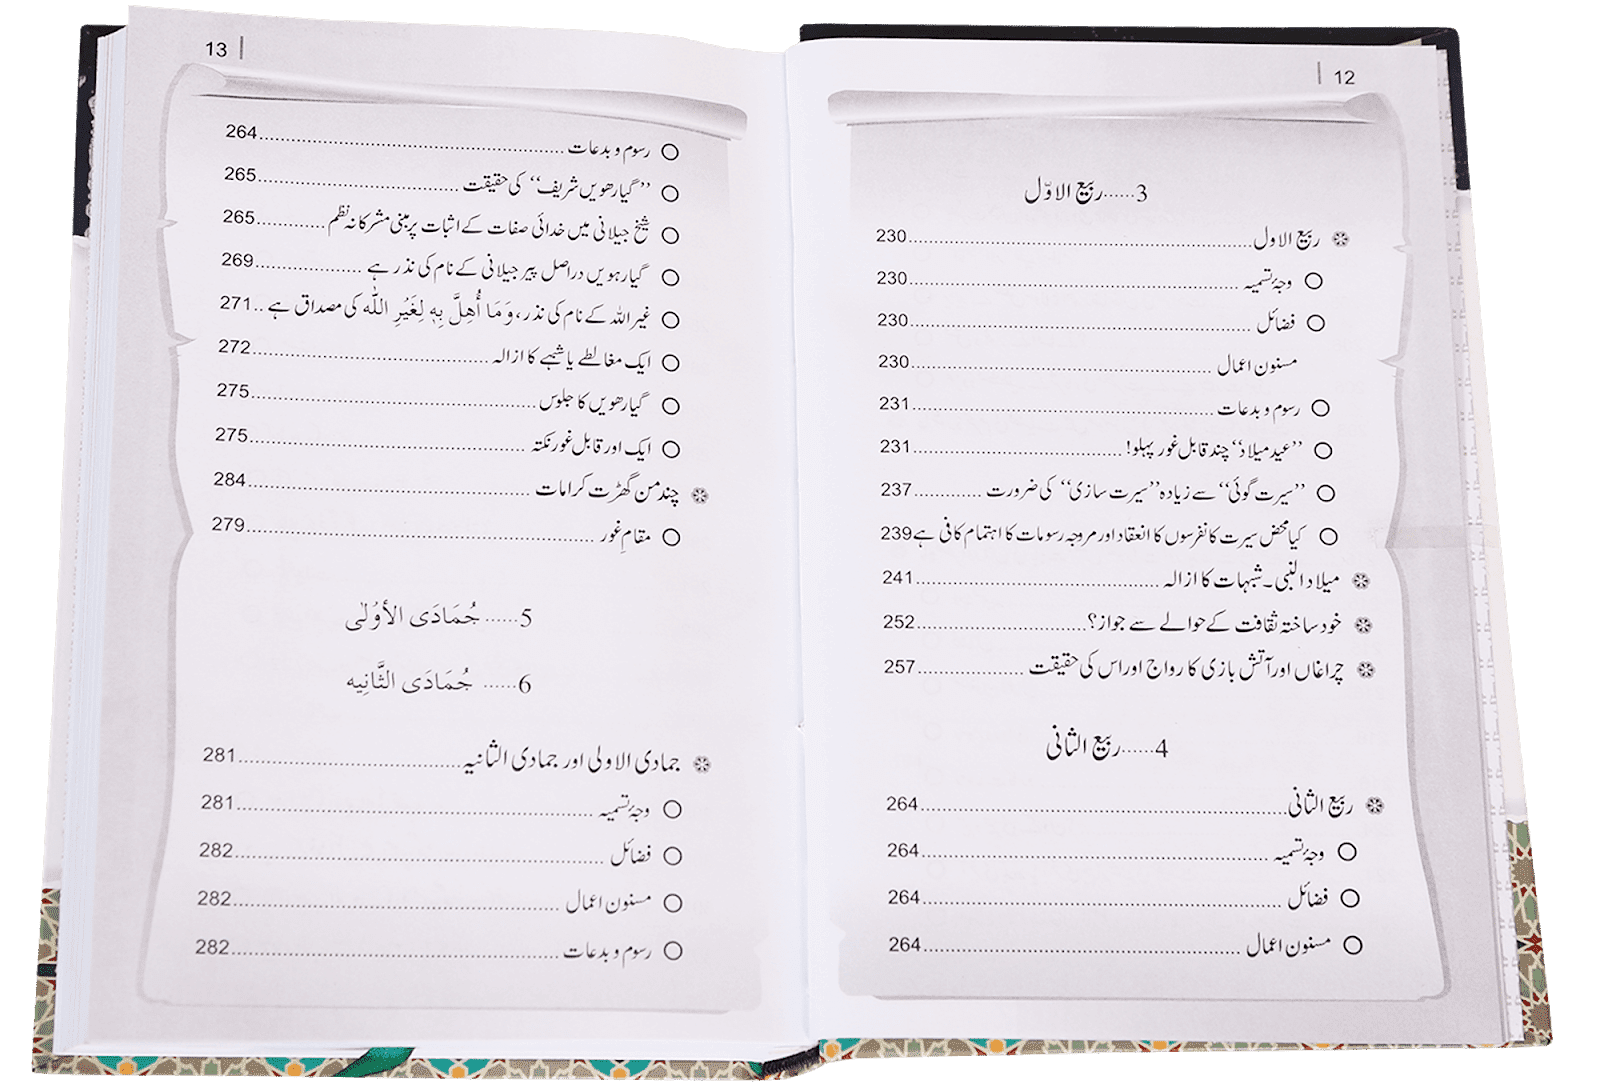 12
3......ربیع الاوّل
ربیع الاول 230
وجۂ تسمیہ 230
فضائل 230
مسنون اعمال 230
رسوم و بدعات 231
’’عید میلاد‘‘ چند قابل غور پہلو! 231
’’سیرت گوئی‘‘ سے زیادہ ’’سیرت سازی‘‘ کی ضرورت 237
کیا محض سیرت کانفرسوں کا انعقاد اور مروجہ رسومات کا اہتمام کافی ہے 239
میلاد النبی۔ شبہات کا ازالہ 241
خود ساختہ ثقافت کے حوالے سے جواز؟ 252
چراغاں اور آتش بازی کا رواج اور اس کی حقیقت 257
4......ربیع الثانی
ربیع الثانی 264
وجۂ تسمیہ 264
فضائل 264
مسنون اعمال 264
13
رسوم و بدعات 264
’’گیارھویں شریف‘‘ کی حقیقت 265
شیخ جیلانی میں خدائی صفات کے اثبات پر مبنی مشرکانہ نظم 265
گیارہویں دراصل پیر جیلانی کے نام کی نذر ہے 269
غیر اللہ کے نام کی نذر، وَمَا أُهِلَّ بِهٖ لِغَيْرِ اللّٰه کی مصداق ہے 271
ایک مغالطے یا شبہے کا ازالہ 272
گیارھویں کا جلوس 275
ایک اور قابل غور نکتہ 275
چند من گھڑت کرامات 284
مقامِ غور 279
5......جُمَادَى الأوْلٰى
6......جُمَادَى الثَّانِيه
جمادی الاولی اور جمادی الثانیہ 281
وجۂ تسمیہ 281
فضائل 282
مسنون اعمال 282
رسوم و بدعات 282